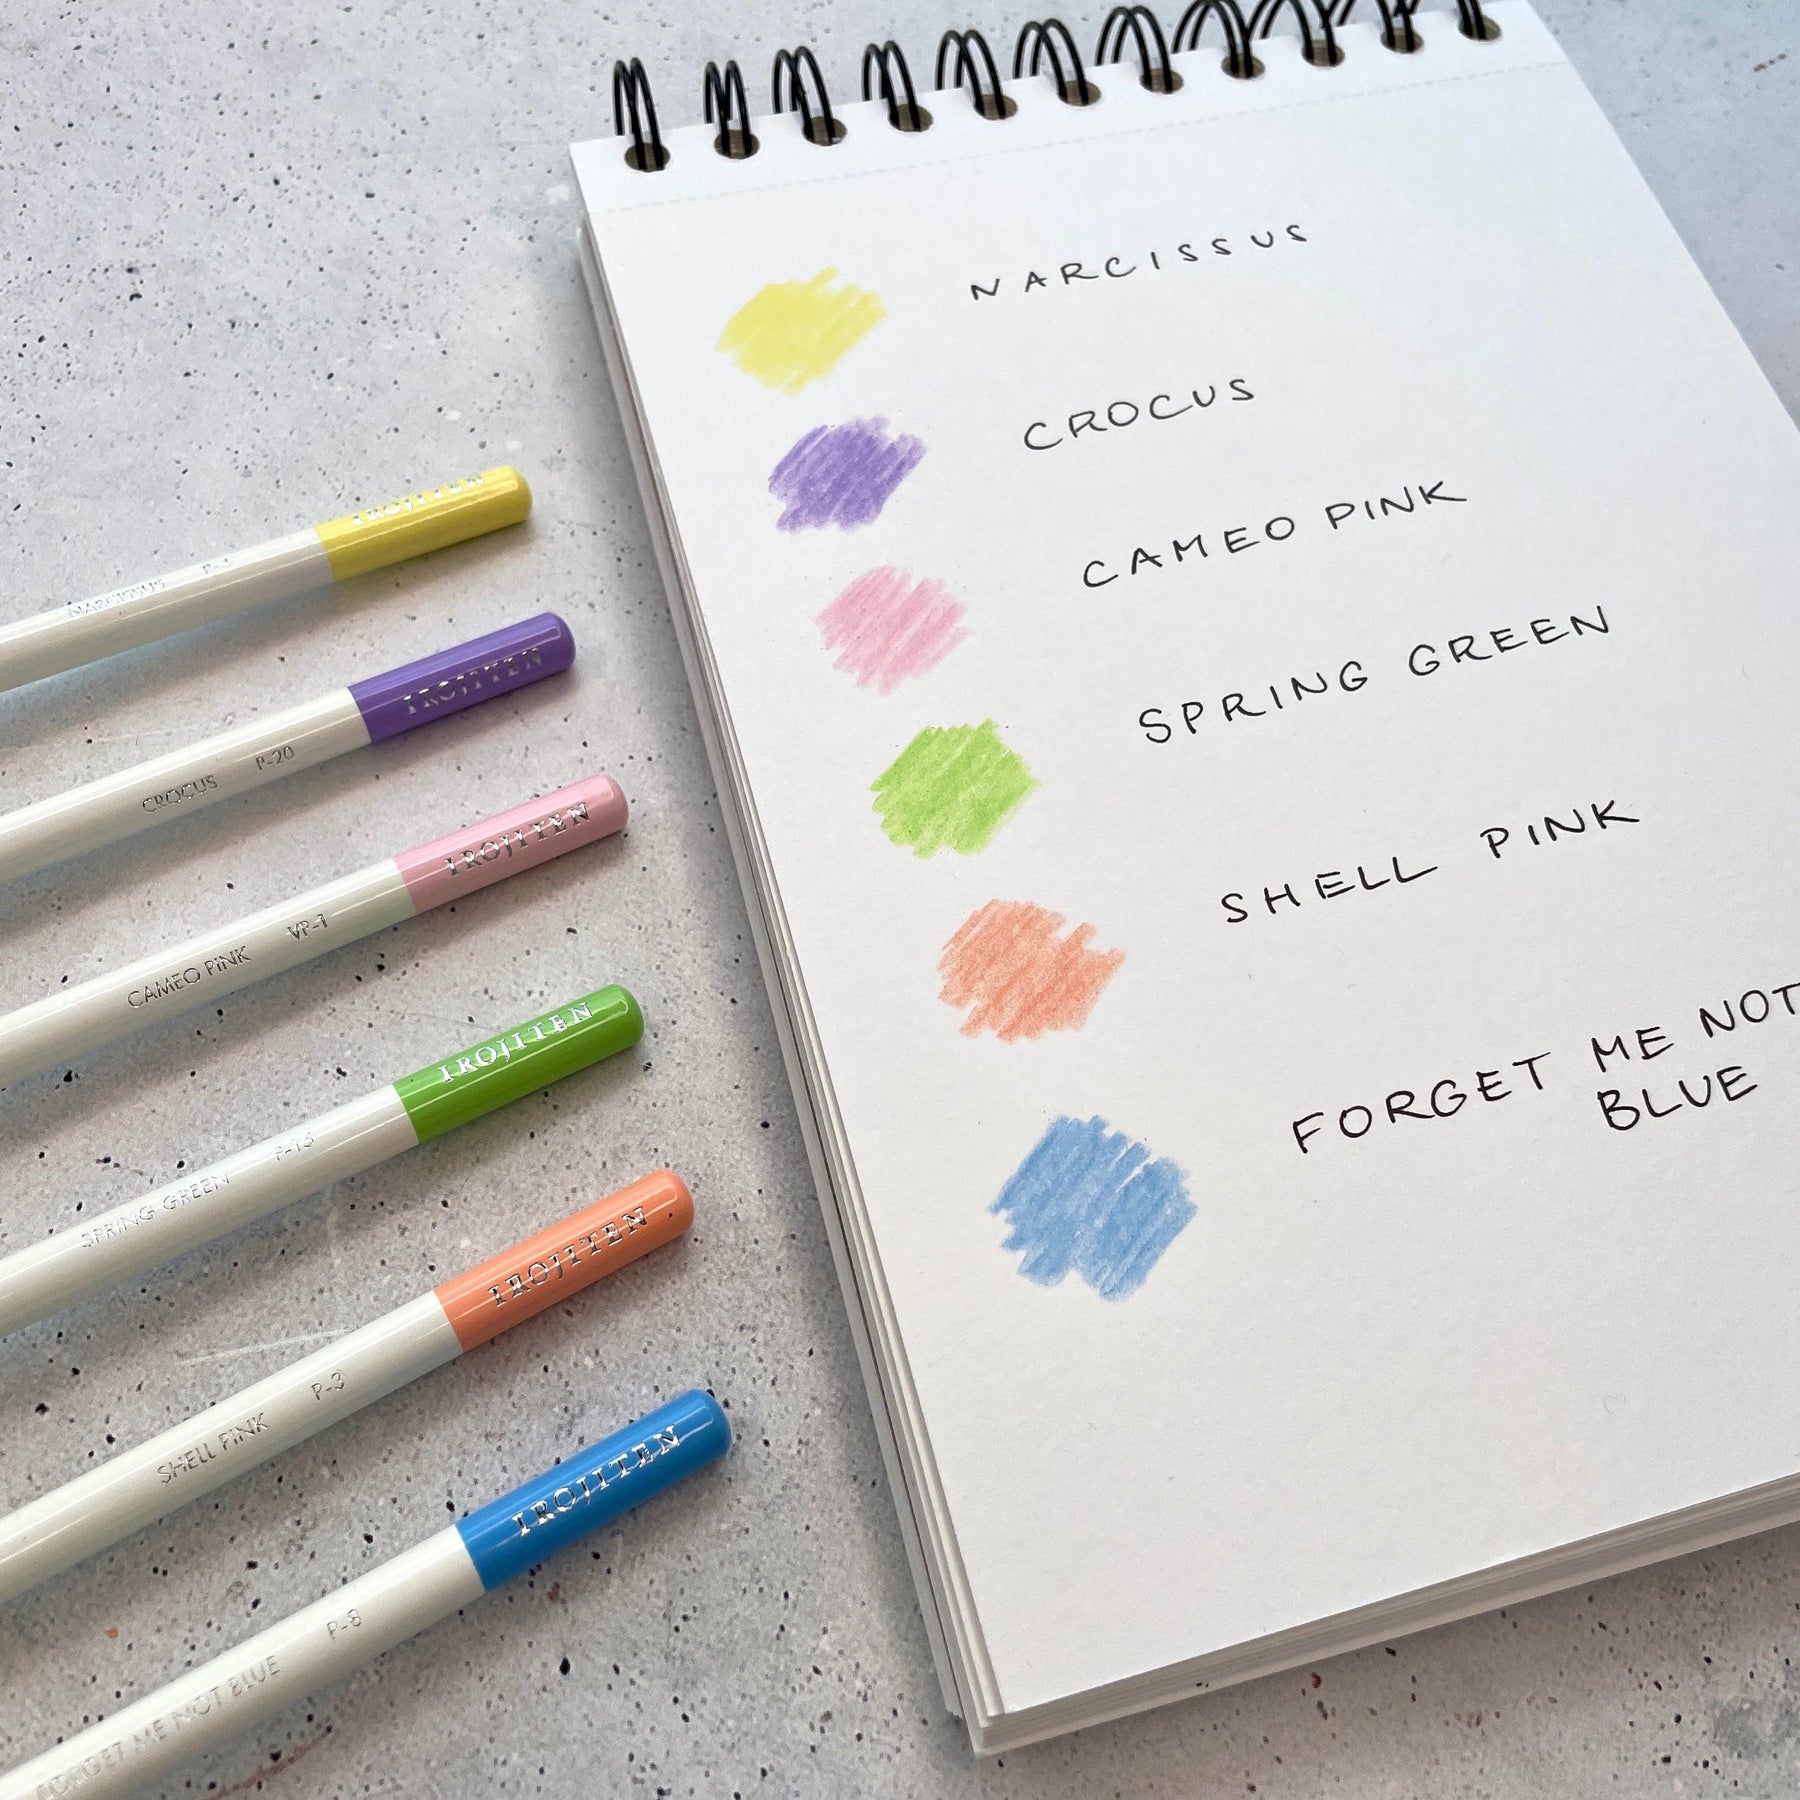 NARCISSUS
CROCUS
CAMEO PINK
SPRING GREEN
SHELL PINK
FORGET ME NOT
BLUE
IROJITEN
NARCISSUS
IROJITEN
CROCUS P-20
IROJITEN
CAMEO PINK VP-1
IROJITEN
SPRING GREEN
IROJITEN
SHELL PINK P-3
IROJITEN
FORGET ME NOT BLUE P-8